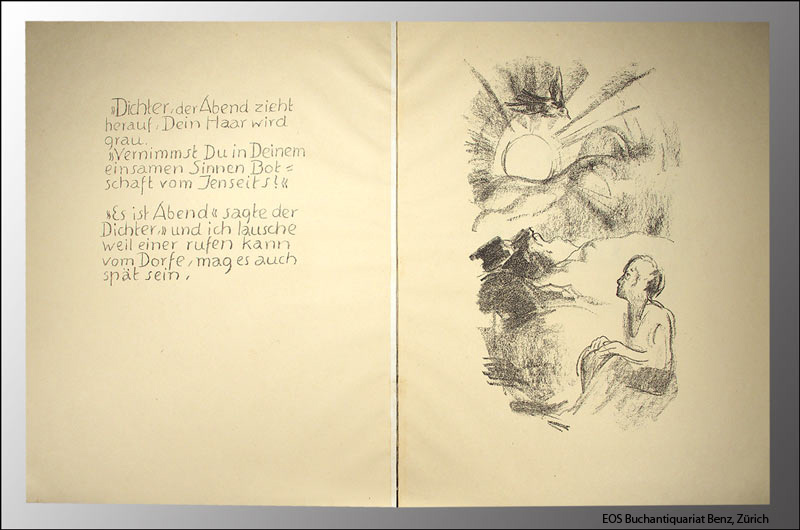 »Dichter, der Abend zieht
herauf, Dein Haar wird
grau.
»Vernimmst Du in Deinem
einsamen Sinnen Bot=
schaft vom Jenseits!«
»Es ist Abend« sagte der
Dichter,» und ich lausche
weil einer rufen kann
vom Dorfe, mag es auch
spät sein,
EOS Buchantiquariat Benz, Zürich